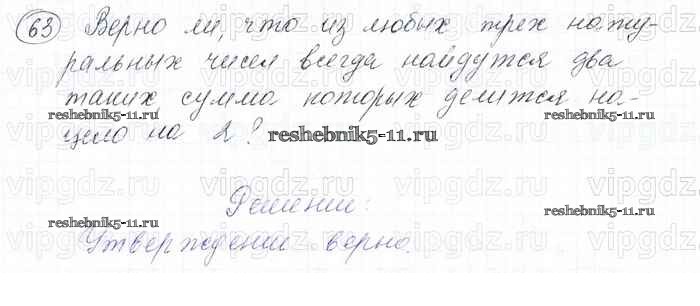 63 Верно ли, что из любых трех нату-
ральных чисел всегда найдутся два
таких, сумма которых делится на-
reshebnik5-11.ru reshebnik5-11.ru reshebnik5-11.ru
цело на 2?
Решение:
reshebnik5-11.ru reshebnik5-11.ru
Утверждение верно.
vipgdz.ru vipgdz.ru vipgdz.ru